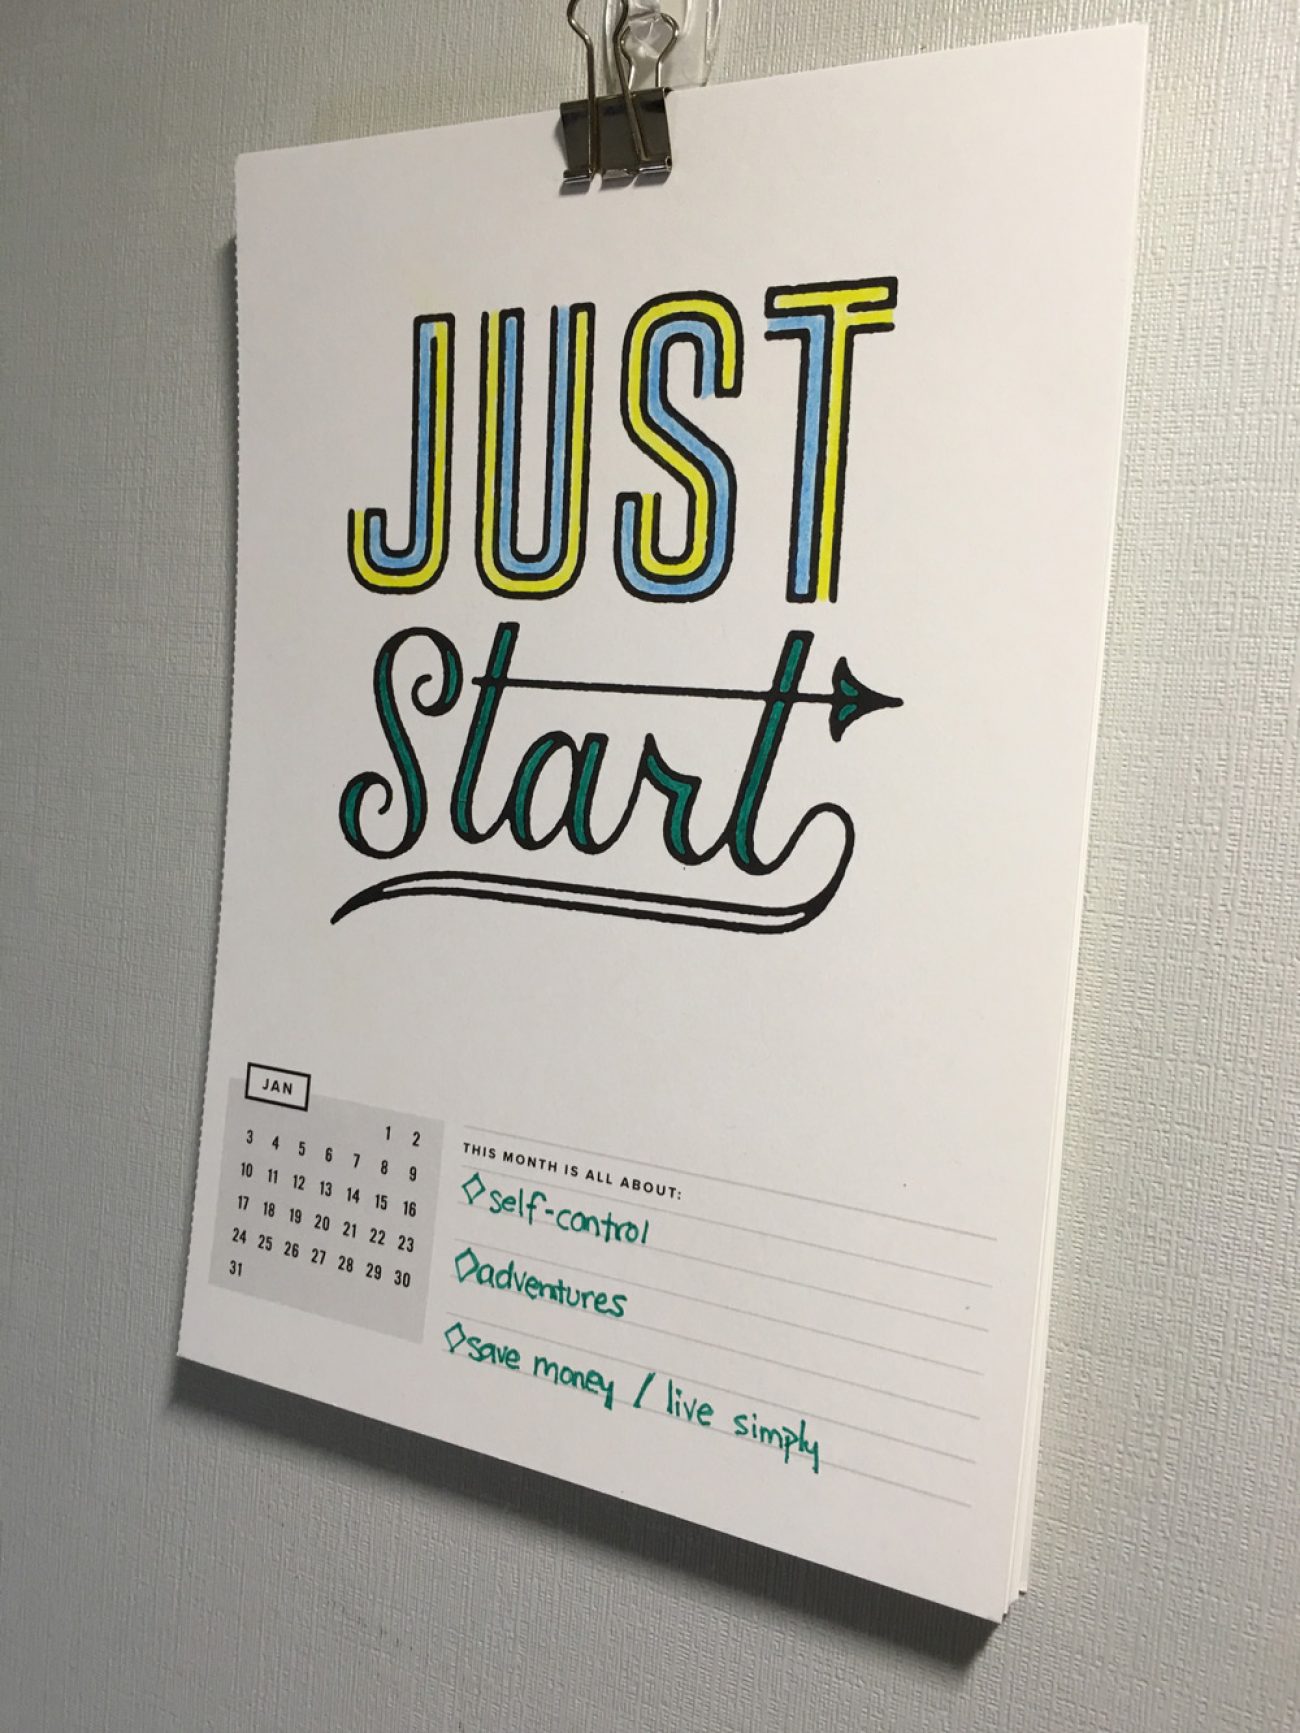 JUST
Start
JAN
1 2
3 4 5 6 7 8 9
10 11 12 13 14 15 16
17 18 19 20 21 22 23
24 25 26 27 28 29 30
31
THIS MONTH IS ALL ABOUT:
◇self-control
◇adventures
◇save money / live simply